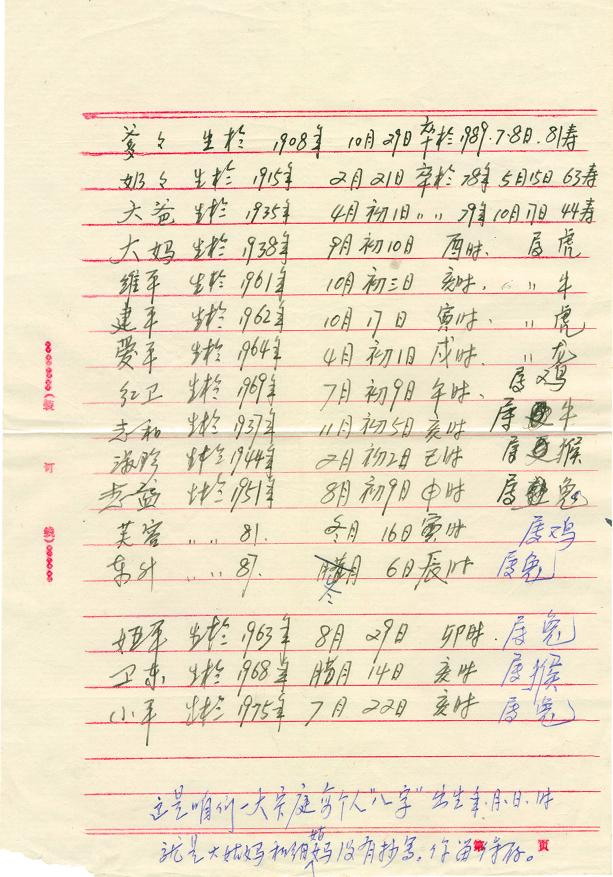 爹々 生於 1908年 10月29日 卒於1989.7.8日.81寿
奶々 生於 1915年 2月21日 卒於78年5月15日 63寿
大爸 生於 1935年 4月初1日〃〃79年10月17日 44寿
大妈 生於 1938年 9月初10日 酉时. 属虎
維平 生於 1961年 10月初三日 亥时. 〃牛
建平 生於 1962年 10月17日 寅时. 〃虎
爱平 生於 1964年 4月初1日 戌时. 〃龙
红卫 生於 1969年 7月初9日 午时. 属鸡
志和 生於 1937年 11月初5日 亥时 属牛
淑玲 生於 1944年 2月初2日 巳时 属猴
志益 生於 1951年 8月初9日 申时 属兔
芙容 〃〃 81. 冬月16日寅时 属鸡
东升 〃〃 87. 冬月6日辰时 属兔
娅平 生於 1963年 8月29日 卯时. 属兔
卫东 生於 1968年 腊月14日 亥时 属猴
小平 生於 1975年 7月22日 亥时 属兔
这是咱们一大家庭每个人"八字"出生年.月.日.时
就是大姑妈和细姑妈没有抄写,你留待存。
(装 订 线)
第 页